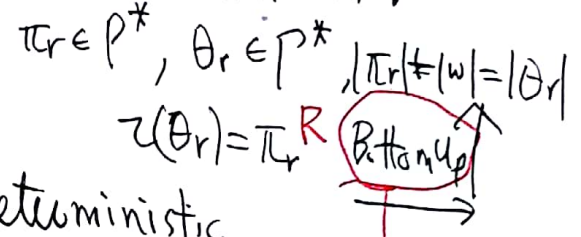 πr ∈ P*, θr ∈ Γ*, |πr| ≠ |w| = |θr|
τ(θr) = πr^R Bottom up
eterministic